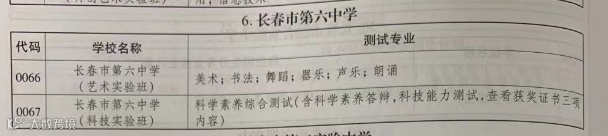 6.长春市第六中学
代码 学校名称 测试专业
0066 长春市第六中学 美术；书法；舞蹈；器乐；声乐；朗诵
（艺术实验班）
0067 长春市第六中学 科学素养综合测试(含科学素养答辩,科技能力测试,查看获奖证书三项
（科技实验班） 内容)
大数跨境